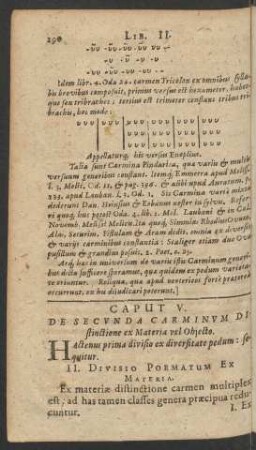 290 LIB. II.
Idem libr. 4. Oda 20. carmen Tricolon ex omnibus syllabis
brevibus composuit, primus versus est hexameter, habetque
sex tribraches: tertius est trimeter constans tribus tribrachis,
hoc modo:
Appellaturq; hic versus Enoplius.
Talia sunt Carmina Pindarica, quæ variis & multis
versuum generibus constant. Itemq; Emmetra apud Meliss.
l. 3. Melic. Od. 11, & pag. 190. & alibi apud Auratum. p.
223. apud Lauban. l. 2. Od. 1. Sic Carmina varii metri
dederunt Dan. Heinsius & Eobanus noster in
Novemb. Melisse Melica. Ita quoq; Simmiæ Rhodii Ovum,
Ala, Securim, Fistulam & Aram dedit, omnia ex diversis
& variis carminibus constantia: Scaliger etiam duo Ova
pusillum & grandius posuit, 2. Poet. c. 25.
Atq; hæc in universum de variis istis Carminum generibus
dicta sufficere speramus, quæ quidem ex pedum varietate
oriuntur. Reliqua, quæ apud neotericos forte
occurrunt, ex hu dijudicari poterunt.]
CAPUT V.
DE SECUNDA CARMINUM DIstinctione
ex Materia vel Objecto.
Hactenus prima divisio ex diversitate pedum: sequitur.
II. DIVISIO POEMATUM EX
MATERIA.
Ex materiæ distinctione carmen multiplex
est, ad has tamen classes genera præcipua reducuntur.
I. Ex